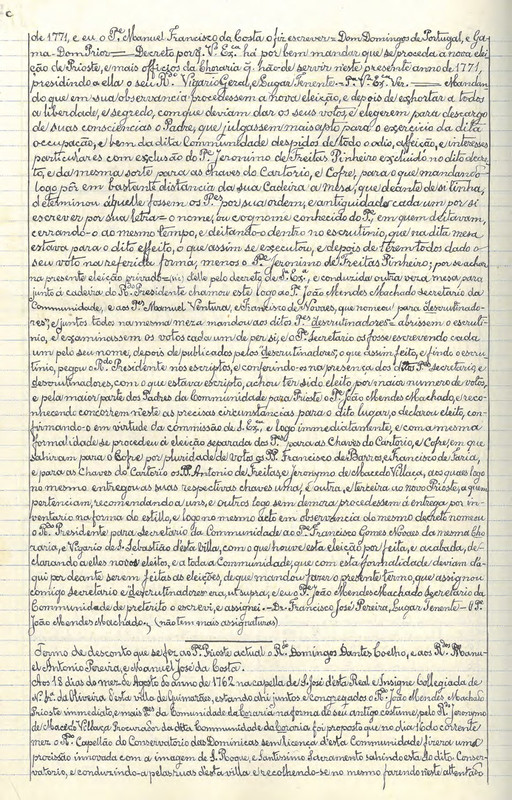 de 1771, e eu o Pe. Manuel Francisco da Costa o fiz escrever = Dom Domingos de Portugal, e Ga-
ma- Dom Prior = Decreto por q. V. Exa. há por bem mandar que se proceda á nova elei-
ção de Prioste, e mais officios da Choraria q. hão de servir neste presente anno de 1771,
presidindo a ella o seu Rdo. Vigario Geral, e Lugar Tenente - Pa. V. Exa. Ver. = Mandan
do que em sua observancia procedessem a nova eleição, e depois de exhortar a todos
a liberdade, e segredo, com que deviam dar os seus votos, e elegerem para descargo
de suas consciências o Padre, que julgassem mais apto para o exercicio da dita
occupação, e bem da dita Communidade despido de todo o odio, affeição, e interesses
particulares com exclusão do Pe. Jeronimo de Freitas Pinheiro excluido no dito decre-
to, e da mesma sorte para as chaves do Cartorio, e Cofre, para o que mandando
logo pôr em bastante distância da sua Cadeira a mesa, que deante de si tinha,
determinou áquelle fossem os Pes. por sua ordem, e antiguidade cada um por si
escrever por sua letra = o nome, ou cognome conhecido do Pe., em quem votavam,
cerrando-o ao mesmo tempo, e deitando-o dentro no escrutinio, que na dita mesa
estava para o dito effeito, o que assim se executou, e depois de terem todos dado o
seu voto na referida forma, menos o Pe. Jeronimo de Freitas Pinheiro; por se achar
na presente eleição privado =(sic) delle pelo decreto de S. Exa., e conduzida outra vez a mesa para
junto á cadeira do Rdo. Presidente chamou este logo ao Pe. João Mendes Machado secretario da
Communidade, e aos Pes. Manuel Ventura, e Francisco de Novaes, que nomeou para descrutinado-
res; e juntos todos na mesma meza mandou aos ditos Pes. descrutinadores = abrissem o escruti-
nio, e examinassem os votos cada um de per si, e o Pe. Secretario os fosse escrevendo cada
um pelo seu nome, depois de publicados pelos descrutinadores, o que assim feito, e findo o escru-
tinio, pegou o Rdo. Presidente nos escriptos, e conferindo-os na presença dos ditos Pes. secretario, e
descrutinadores, com o que estava escripto, achou ter sido eleito por maior numero de votos,
e pela maior parte dos Padres da Communidade para Prioste o Pe. João Mendes Machado, e reco-
nhecendo concorrem n'este as precisas circunstâncias para o dito lugar, o declarou eleito, con-
firmando-o em virtude da commissão de S. Exa., e logo immediatamente, e com a mesma
formalidade se procedeu á eleição separada dos Pes. para as Chaves do Cartorio, e Cofre, em que
sahiram para o Cofre por pluridade de votos os PP. Francisco de Barros, e Francisco de Faria,
e para as Chaves do Cartorio os PP. Antonio de Freitas, e Jeronymo de Macedo Villaça, aos quaes logo
no mesmo entregou as suas respectivas chaves uma, e outra, e terceira ao novo Prioste, a quem
pertenciam, recomendando a uns, e outros logo sem demora procedessem á entrega por in-
ventario na forma do estillo, e logo no mesmo acto em observância do mesmo decreto nomeou
o Rdo. Presidente para secretario da Communidade ao Pe. Francisco Gomes Novaes da mesma Cho
raria, e Vigario de S. Sebastião desta villa, com o que houve esta eleição por feita, e acabada, de-
clarando a elles novos eleitos, e a toda a Communidade, que com esta formalidade deviam da-
qui por deante serem feitas as eleições, de que mandou fazer o presente termo, que assignou
comigo secretario e descrutinadores era, ut supra; e eu o Pe. João Mendes Machado Secretario da
Communidade de preterito o escrevi, e assignei. - Dr. Francisco José Pereira, Lugar Tenente - O Pe.
João Mendes Machado, (não tem mais assignaturas)
Termo de desconto que se fez ao Pe. Prioste actual o Rdo. Domingos Dantas Coelho, e aos Rdos. Manu-
el Antonio Pereira, e Manuel José da Costa.
Aos 18 dias do mez de Agosto do anno de 1762 na capella de S. José d'esta Real e Insigne Collegiada de
N. Sra. da Oliveira d'esta villa de Guimarães, estando ahi juntos e congregados o Rdo. João Mendes Machado
Prioste immediato, e mais Pes. da Comunidade da Coraria na forma do seu antigo costume, pelo Rdo. Jeronymo
de Macedo Villaça Procurador da dita Communidade da Coraria foi proposto que no dia 16 do corrente
mez o Rdo. Capellão do Conservatorio das Dominicas sem licença d'esta Communidade fizera uma
procissão innovada com a imagem de S. Roque, e Santissimo Sacramento sahindo esta do dito Conser-
vatorio, e conduzindo-a pelas ruas d'esta villa e recolhendo-se no mesmo fazendo n'este attentado